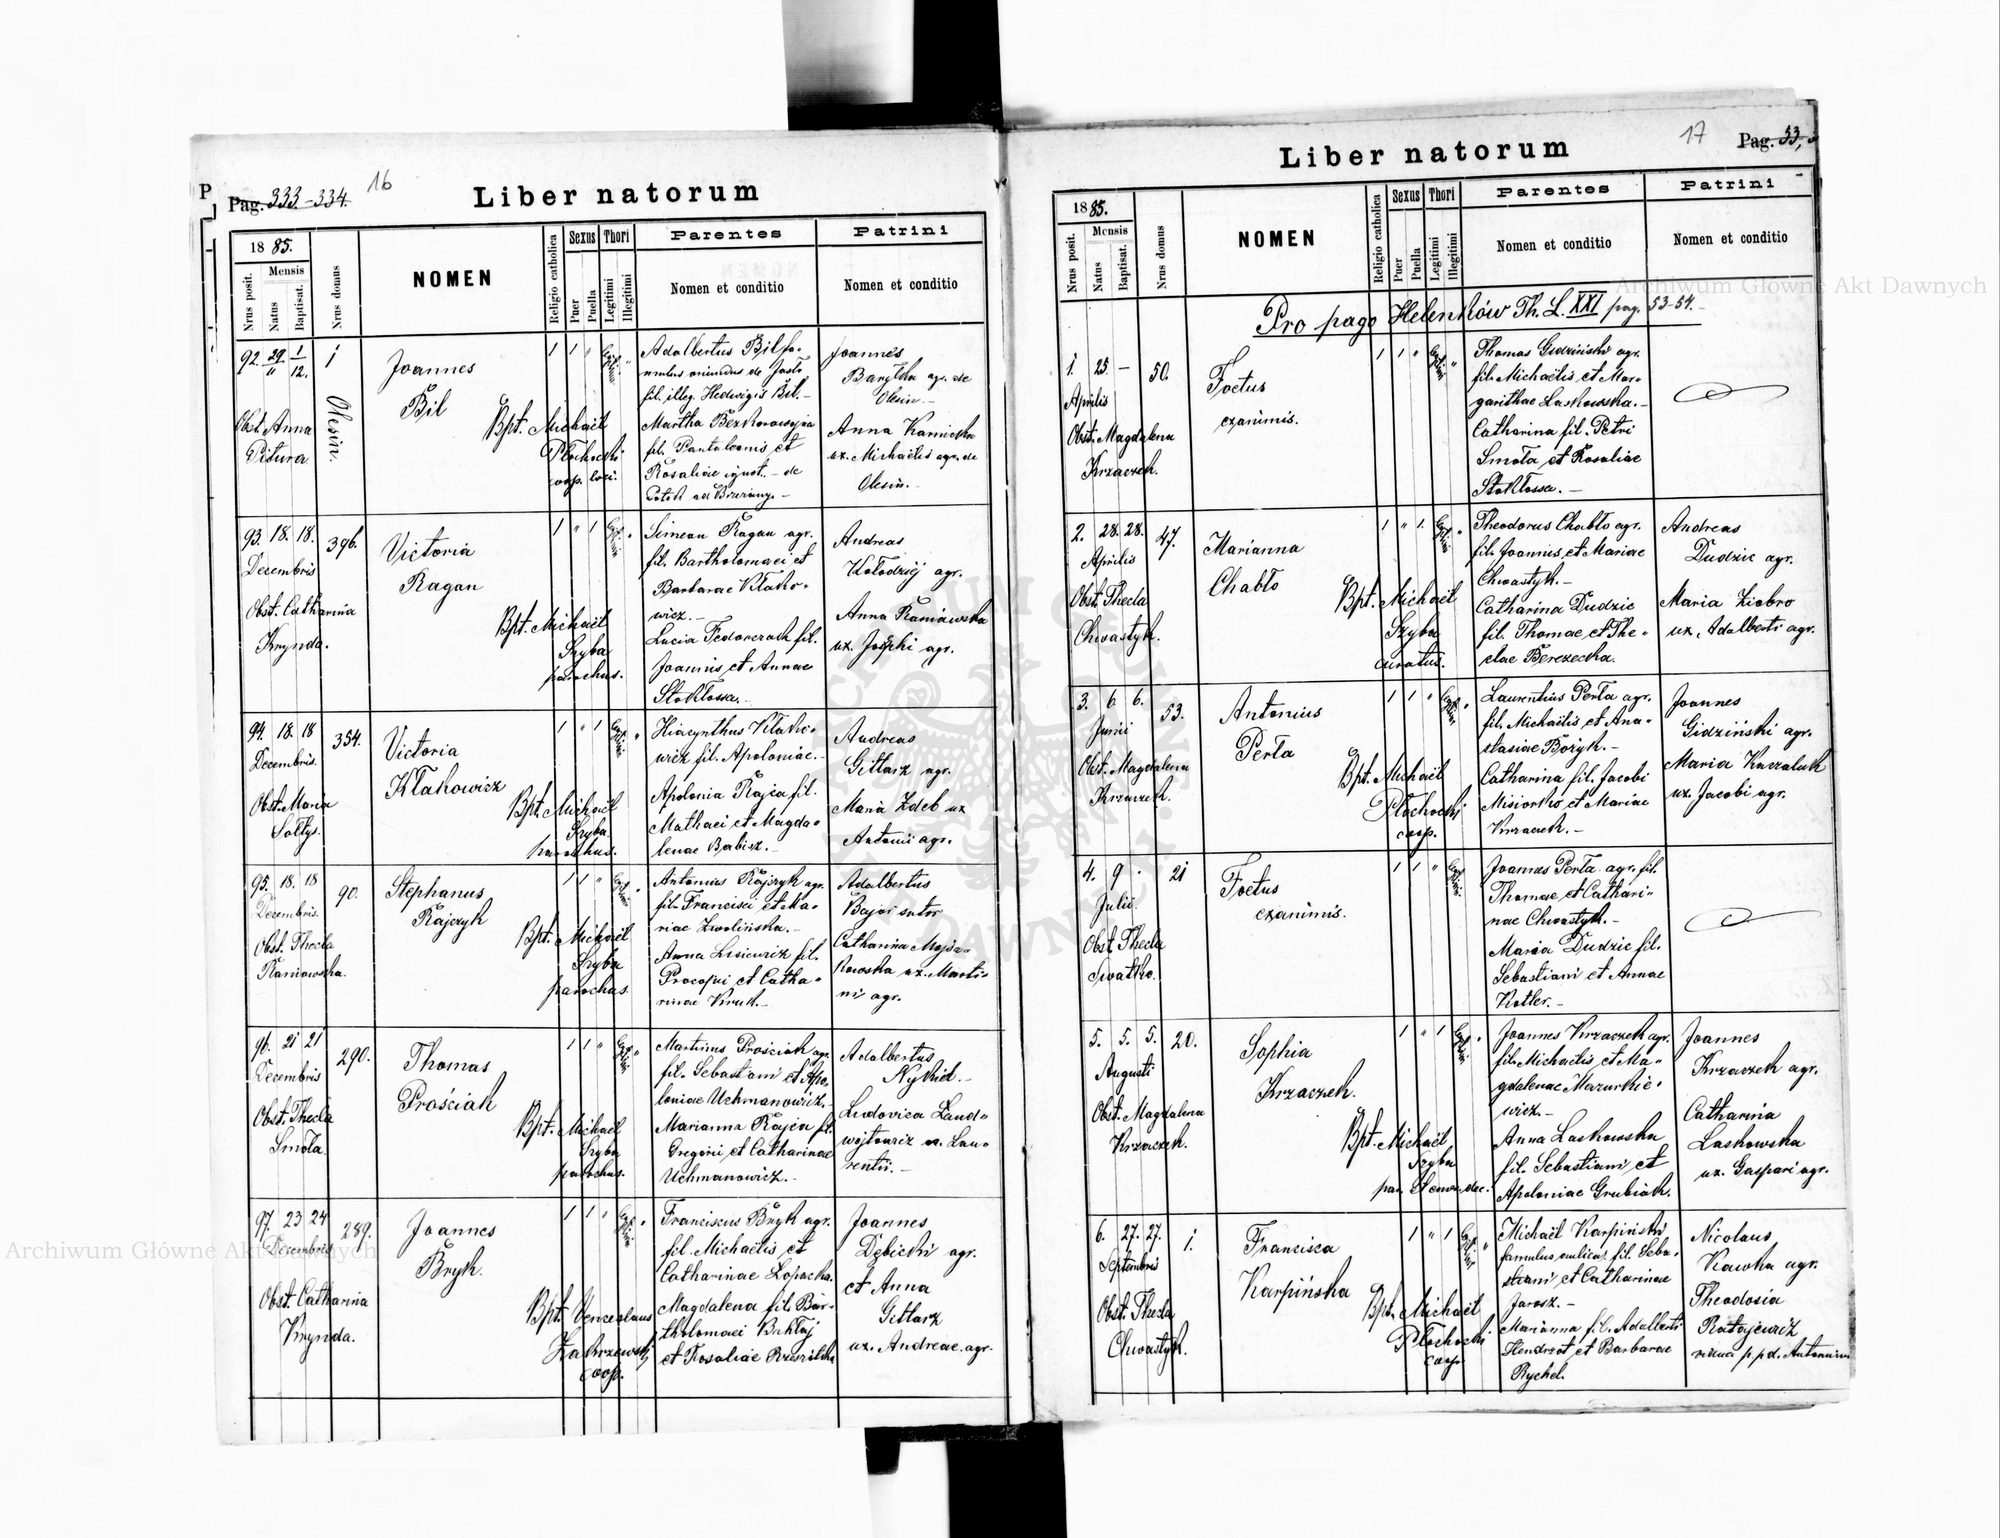 Pag. 333-334. 16
Liber natorum
18 85.
Nrus posit.
Mensis
Natus
Baptisat.
Nrus domus
NOMEN
Religio catholica
Sexus
Puer
Puella
Thori
Legitimi
Illegitimi
Parentes
Nomen et conditio
Patrini
Nomen et conditio
92. 29/11 1/12. 1 Olesin.
Obst. Anna
Pitura
Joannes
Bil
Bpt. Michaël
Płochocki
coop. loci.
1 1 "
Adalbertus Bil fa-
mulus oriundus de
fil. illeg. Hedwigis Bil. -
Martha Bezkorowajna
fil. Pantaleonis et
Rosaliae ignot. - de
Potok ad Brzeżany. -
Joannes
agr. de
Olesin. -
Anna Kamiecka
ux. Michaëlis agr. de
Olesin. -
93. 18. 18. 396.
Decembris
Obst. Catharina
Krynda.
Victoria
Ragan
Bpt. Michaël
Szyba
parochus.
1 " 1
Simeon Ragan agr.
fil. Bartholomaei et
Barbarae Kłako-
wicz. -
Lucia Fedorczak fil.
Joannis et Annae
Stokłossa. -
Andreas
Kołodziéj agr.
Anna Raniowska
ux. Josephi agr.
94. 18. 18 354.
Decembris.
Obst. Maria
Sołtys.
Victoria
Kłakowicz
Bpt. Michaël
Szyba
parochus.
1 " 1
Hiacynthus Kłako-
wicz fil. Apoloniae. -
Apolonia Rajca fil.
Mathaei et Magda-
lenae Babisz. -
Andreas
Gitlarz agr.
Maria Zdeb ux
Antonii agr.
95. 18. 18 90.
Decembris.
Obst. Thecla
Raniowska.
Stephanus
Rajczyk
Bpt. Michaël
Szyba
parochus.
1 1 "
Antonius Rajczyk agr.
fil. Francisci et Ma-
riae Zwolińska. -
Anna Lisiewicz fil.
Procopii et Catha-
rinae Kruk. -
Adalbertus
Bajor sutor
Catharina
ux. Marti-
ni agr.
96. 21 21 290.
Decembris
Obst. Thecla
Smoła.
Thomas
Prościak
Bpt. Michaël
Szyba
parochus.
1 1 "
Martinus Prościak agr.
fil. Sebastiani et Apo-
loniae Uchmanowicz. -
Marianna Rajca fil.
Gregorii et Catharinae
Uchmanowicz. -
Adalbertus
Nykiel. -
Ludovica Land-
wojtowicz ux. Lau-
rentii. -
97. 23 24 289.
Decembris
Obst. Catharina
Krynda.
Joannes
Bryk.
Bpt. Venceslaus
Zakrzewski
coop.
1 1 "
Franciscus Bryk agr.
fil. Michaëlis et
Catharinae Łopacka.
Magdalena fil. Bar-
tholomaei
et Rosaliae
Joannes
Dębicki agr.
et Anna
Gitlarz
ux. Andreae agr.
17 Pag. 53,
Liber natorum
18 85.
Nrus posit.
Mensis
Natus
Baptisat.
Nrus domus
NOMEN
Religio catholica
Sexus
Puer
Puella
Thori
Legitimi
Illegitimi
Parentes
Nomen et conditio
Patrini
Nomen et conditio
Pro pago Helenków Th. L. XXI pag. 53-54. -
1. 25 - 50.
Aprilis
Obst. Magdalena
Krzaczek.
Foetus
exanimis.
1 1 "
Thomas Gidziński agr.
fil. Michaëlis et Mar-
garithae Laskowska. -
Catharina fil. Petri
Smoła et Rosaliae
Stokłossa. -
2. 28. 28. 47.
Aprilis
Obst. Thecla
Chwastyk.
Marianna
Chabło
Bpt. Michaël
Szyba
curatus.
1 " 1.
Theodorus Chabło agr.
fil. Joannis et Mariae
Chwastyk. -
Catharina Dudzic
fil. Thomae et The-
clae Berezecka.
Andreas
Dudzic agr.
Maria Ziobro
ux. Adalberti agr.
3. 6 6. 53.
Junii
Obst. Magdalena
Krzaczek.
Antonius
Perła
Bpt. Michaël
Płochocki
coop.
1 1 "
Laurentius Perła agr.
fil. Michaëlis et Ana-
stasiae Bożyk. -
Catharina fil. Jacobi
Misiorko et Mariae
Krzaczek. -
Joannes
Gidziński agr.
Maria Kaczaluk
ux. Jacobi agr.
4. 9 . 21
Julii
Obst. Thecla
Swatko.
Foetus
exanimis.
1 1 "
Joannes Perła agr. fil.
Thomae et Cathari-
nae Chwastyk. -
Maria Dudzic fil.
Sebastiani et Annae
Kotler. -
5. 5. 5. 20.
Augusti
Obst. Magdalena
Krzaczek.
Sophia
Krzaczek.
Bpt. Michaël
Szyba
1 " 1
Joannes Krzaczek agr.
fil. Michaëlis et Ma-
gdalenae Mazurkie-
wicz. -
Anna Laskowska
fil. Sebastiani et
Apoloniae Grubiak.
Joannes
Krzaczek agr.
Catharina
Laskowska
ux. Gaspari agr.
6. 27. 27. 1.
Septembris
Obst. Thecla
Chwastyk.
Francisca
Karpińska
Bpt. Michaël
Płochocki
coop.
1 " 1
Michaël Karpiński
famulus aulicus. fil. Seba-
stiani et Catharinae
Jarosz. -
Marianna fil. Adalberti
et Barbarae
Rychel.
Nicolaus
Kawka agr.
Theodosia
Ratajewicz
vidua p. pd. Antonium
Archiwum Główne Akt Dawnych
Archiwum Główne Akt Dawnych